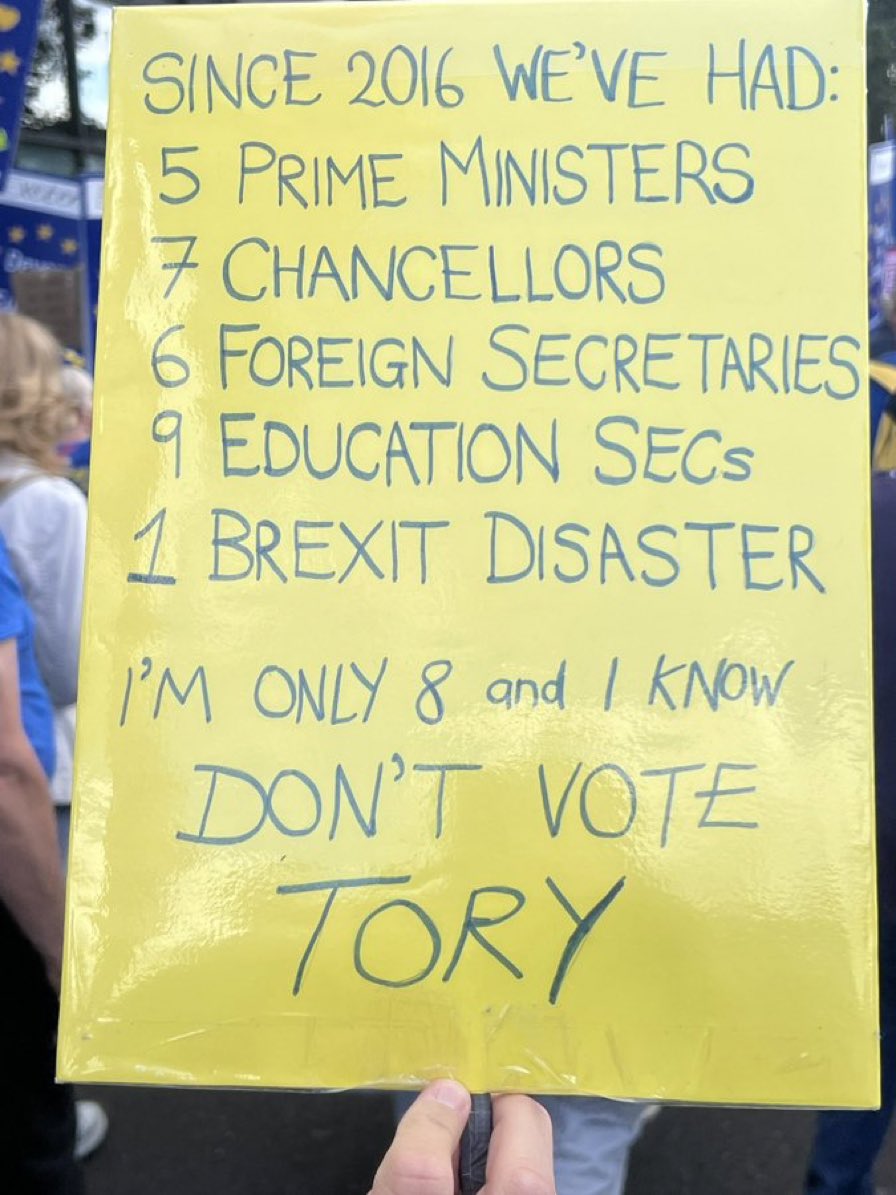 SINCE 2016 WE'VE HAD:
5 PRIME MINISTERS
7 CHANCELLORS
6 FOREIGN SECRETARIES
9 EDUCATION SECs
1 BREXIT DISASTER
I'M ONLY 8 and I KNOW
DON'T VOTE
TORY